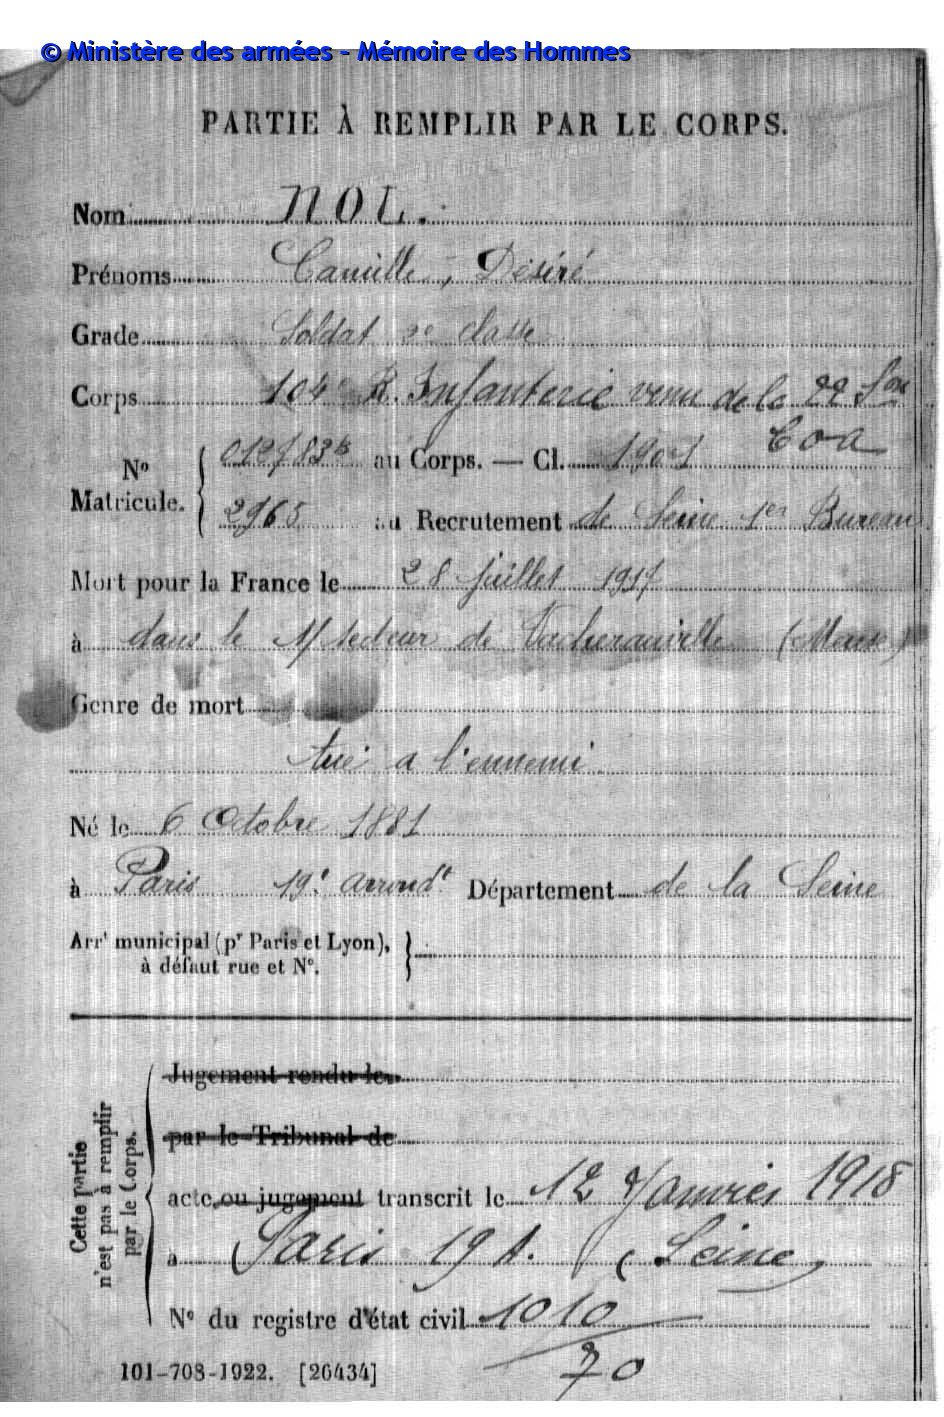 © Ministère des armées - Mémoire des Hommes
PARTIE À REMPLIR PAR LE CORPS.
Nom NOL.
Prénoms Camille, Désiré
Grade Soldat 2e classe
Corps 104e R. Infanterie venu de la 22 Son
C O A
No Matricule. 012783 au Corps. — Cl. 1901
2965 au Recrutement de Seine 1er Bureau
Mort pour la France le 28 juillet 1917
à dans le secteur de Vacherauville (Meuse)
Genre de mort
tué a l'ennemi
Né le 6 Octobre 1881
à Paris 19e arrondt Département de la Seine
Arrt municipal (pr Paris et Lyon),
à défaut rue et No.
Cette partie
n'est pas à remplir
par le Corps.
Jugement rendu le
par le Tribunal de
acte ou jugement transcrit le 12 Janvier 1918
à Paris 19 A. (Seine)
No du registre d'état civil 1010
70
101-708-1922. [26434]